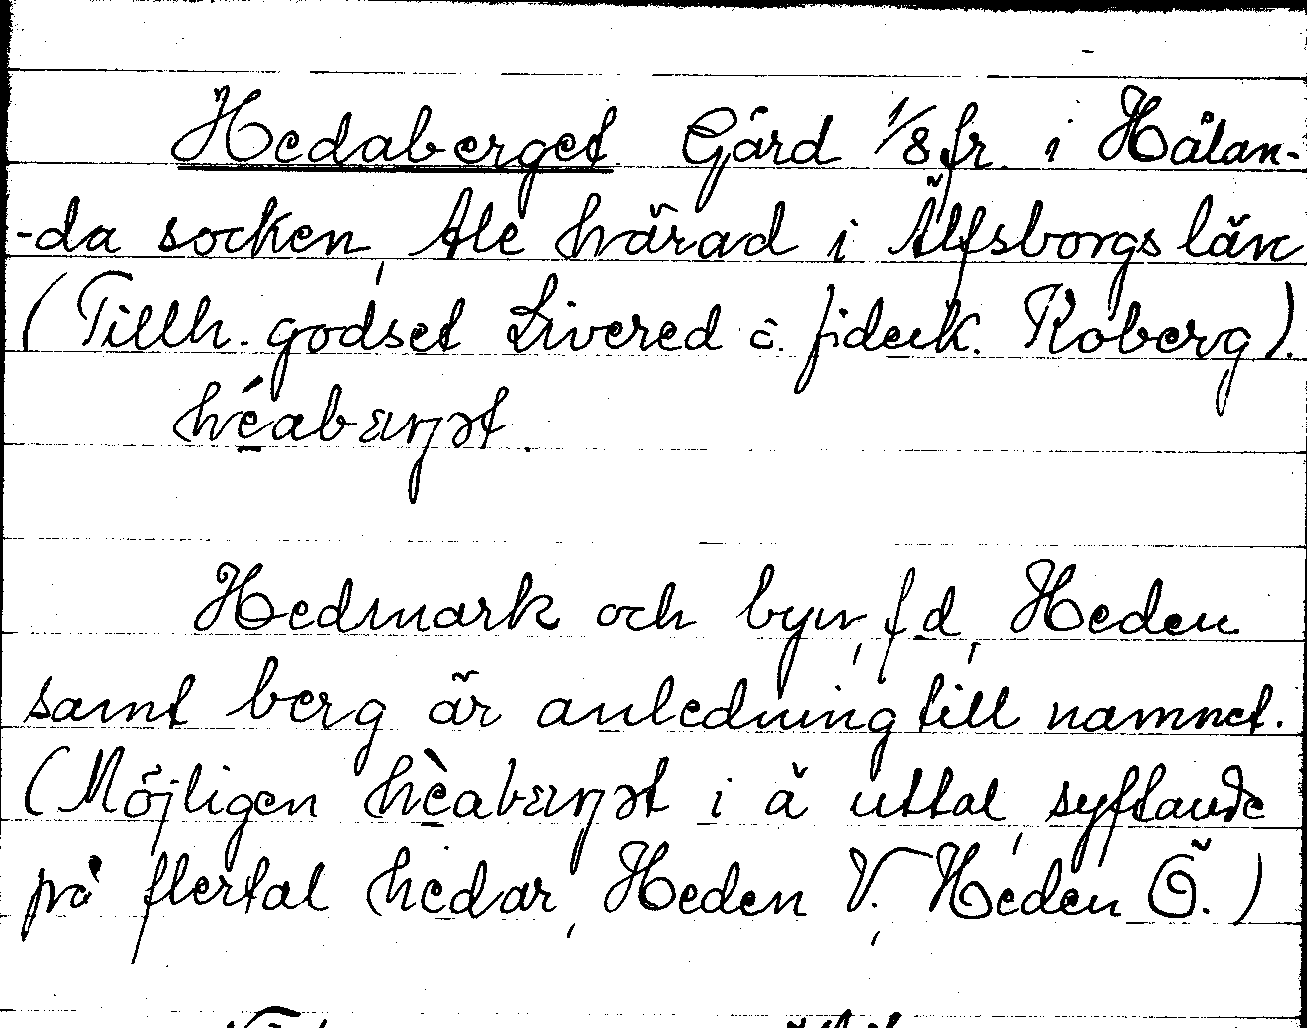 Hedaberget Gård 1/8 fr. i Hålan-
-da socken, Ale härad i Älfsborgs län
(Tillh. godset Livered o. fideik. Koberg).
héabærjət.
Hedmark och byn, f.d., Heden
samt berg är anledning till namnet.
(Möjligen hèabærjət i å uttal, syftande
på flertal hedar, Heden V., Heden Ö.)